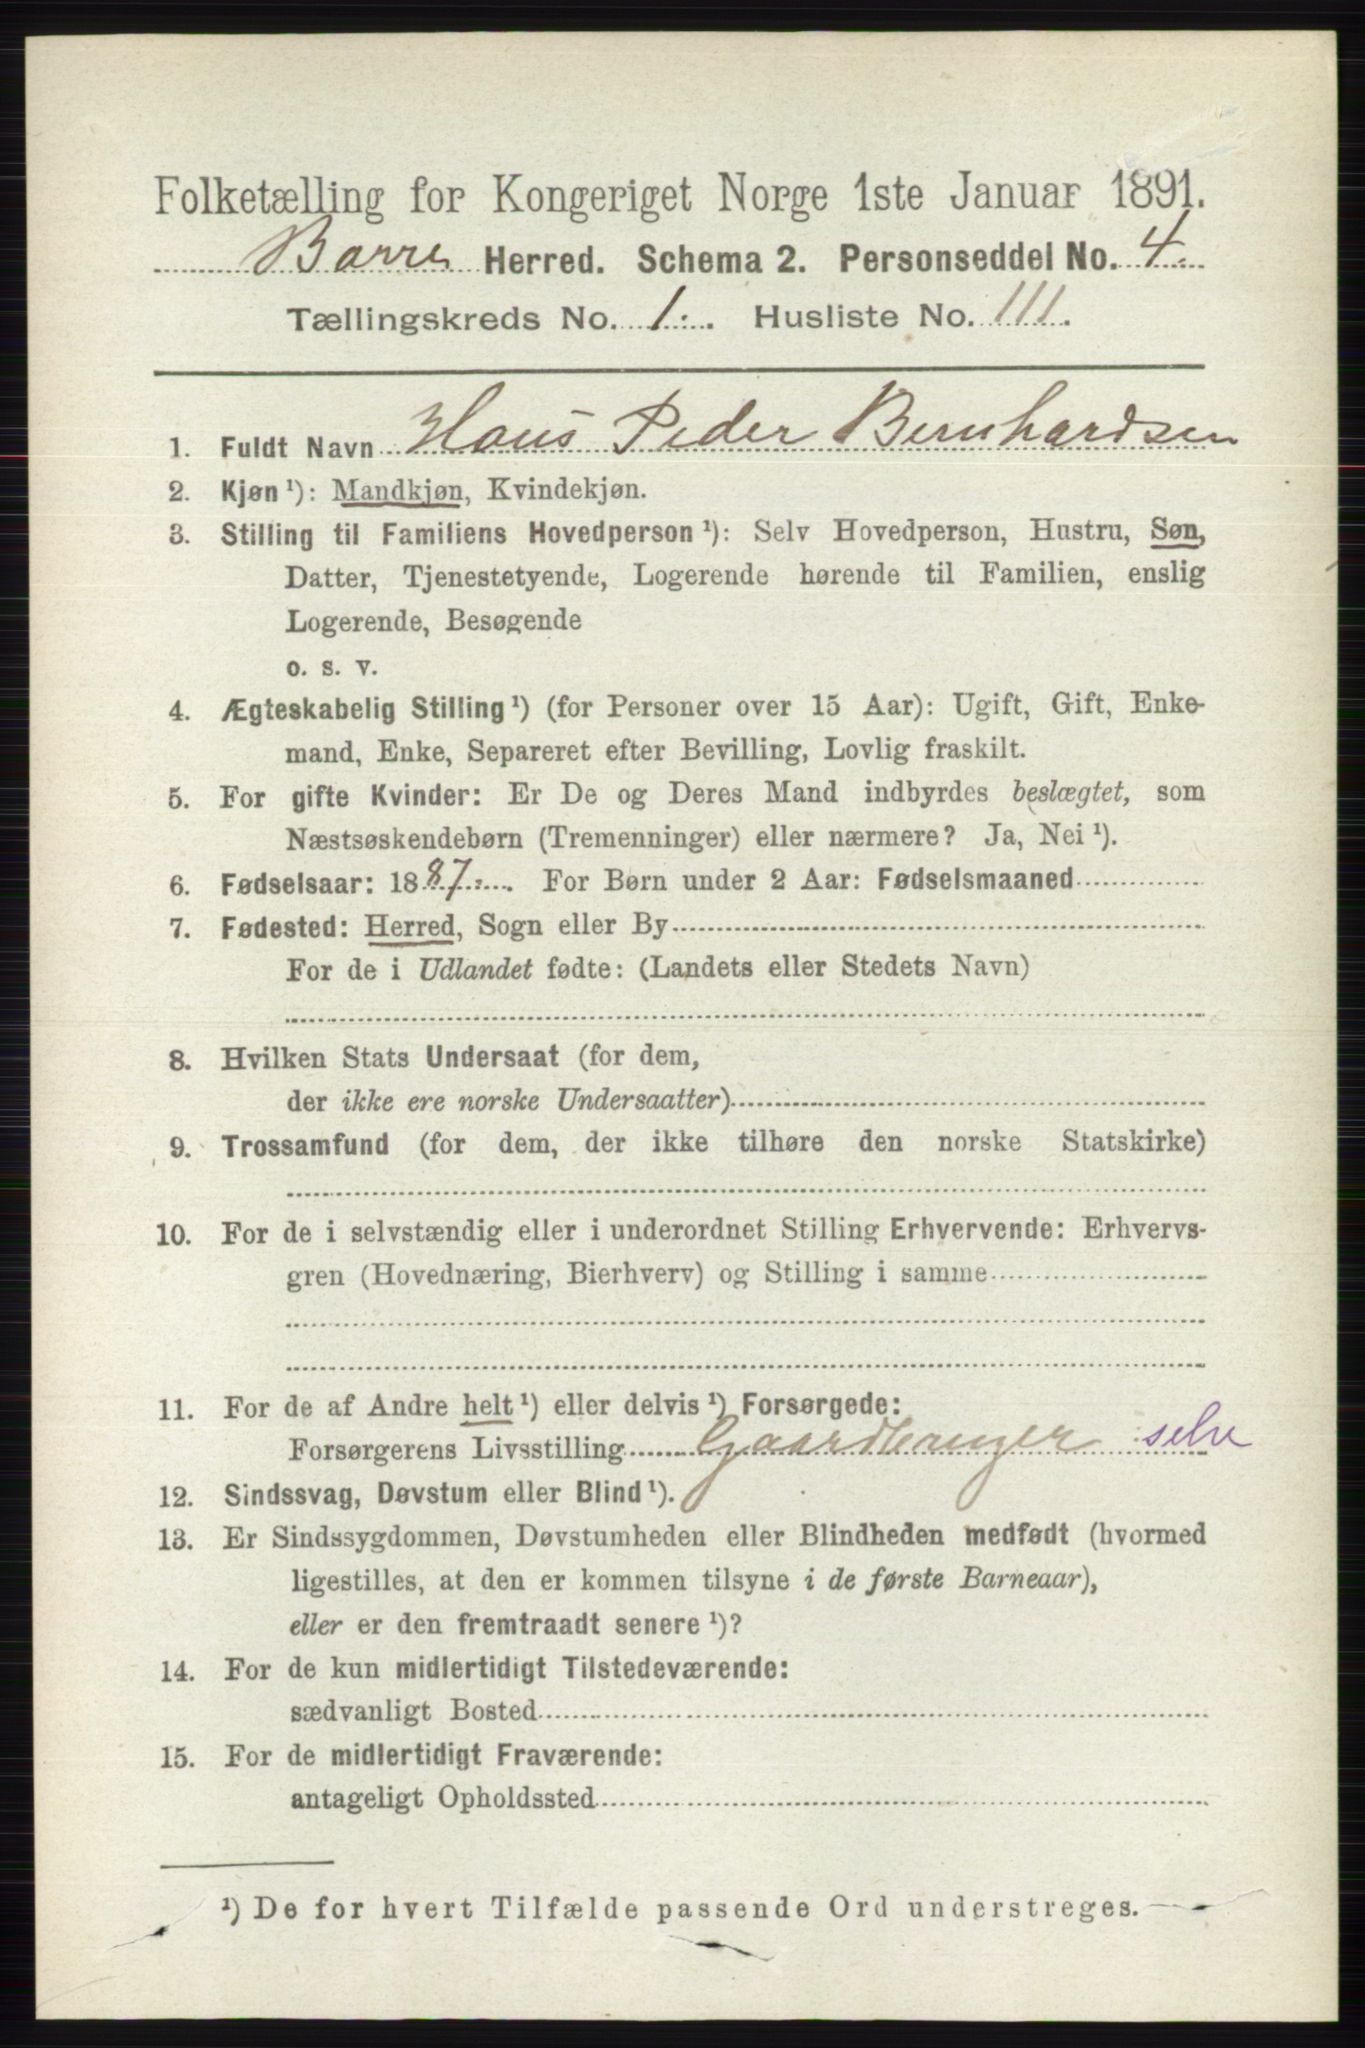 Folketælling for Kongeriget Norge 1ste Januar 1891.
Borre Herred. Schema 2. Personseddel No. 4.
Tællingskreds No. 1. Husliste No. 111.
1. Fuldt Navn Hans Peder Bernhardsen
2. Kjøn ¹): Mandkjøn, Kvindekjøn.
3. Stilling til Familiens Hovedperson ¹): Selv Hovedperson, Hustru, Søn,
Datter, Tjenestetyende, Logerende hørende til Familien, enslig
Logerende, Besøgende
o. s. v.
4. Ægteskabelig Stilling ¹) (for Personer over 15 Aar): Ugift, Gift, Enke-
mand, Enke, Separeret efter Bevilling, Lovlig fraskilt.
5. For gifte Kvinder: Er De og Deres Mand indbyrdes beslægtet, som
Næstsøskendebørn (Tremenninger) eller nærmere? Ja, Nei ¹).
6. Fødselsaar: 1887. For Børn under 2 Aar: Fødselsmaaned
7. Fødested: Herred, Sogn eller By
For de i Udlandet fødte: (Landets eller Stedets Navn)
8. Hvilken Stats Undersaat (for dem,
der ikke ere norske Undersaatter)
9. Trossamfund (for dem, der ikke tilhøre den norske Statskirke)
10. For de i selvstændig eller i underordnet Stilling Erhvervende: Erhvervs-
gren (Hovednæring, Bierhverv) og Stilling i samme
11. For de af Andre helt ¹) eller delvis ¹) Forsørgede:
Forsørgerens Livsstilling Gaardbruger selv
12. Sindssvag, Døvstum eller Blind ¹).
13. Er Sindssygdommen, Døvstumheden eller Blindheden medfødt (hvormed
ligestilles, at den er kommen tilsyne i de første Barneaar),
eller er den fremtraadt senere ¹)?
14. For de kun midlertidigt Tilstedeværende:
sædvanligt Bosted
15. For de midlertidigt Fraværende:
antageligt Opholdssted
¹) De for hvert Tilfælde passende Ord understreges.